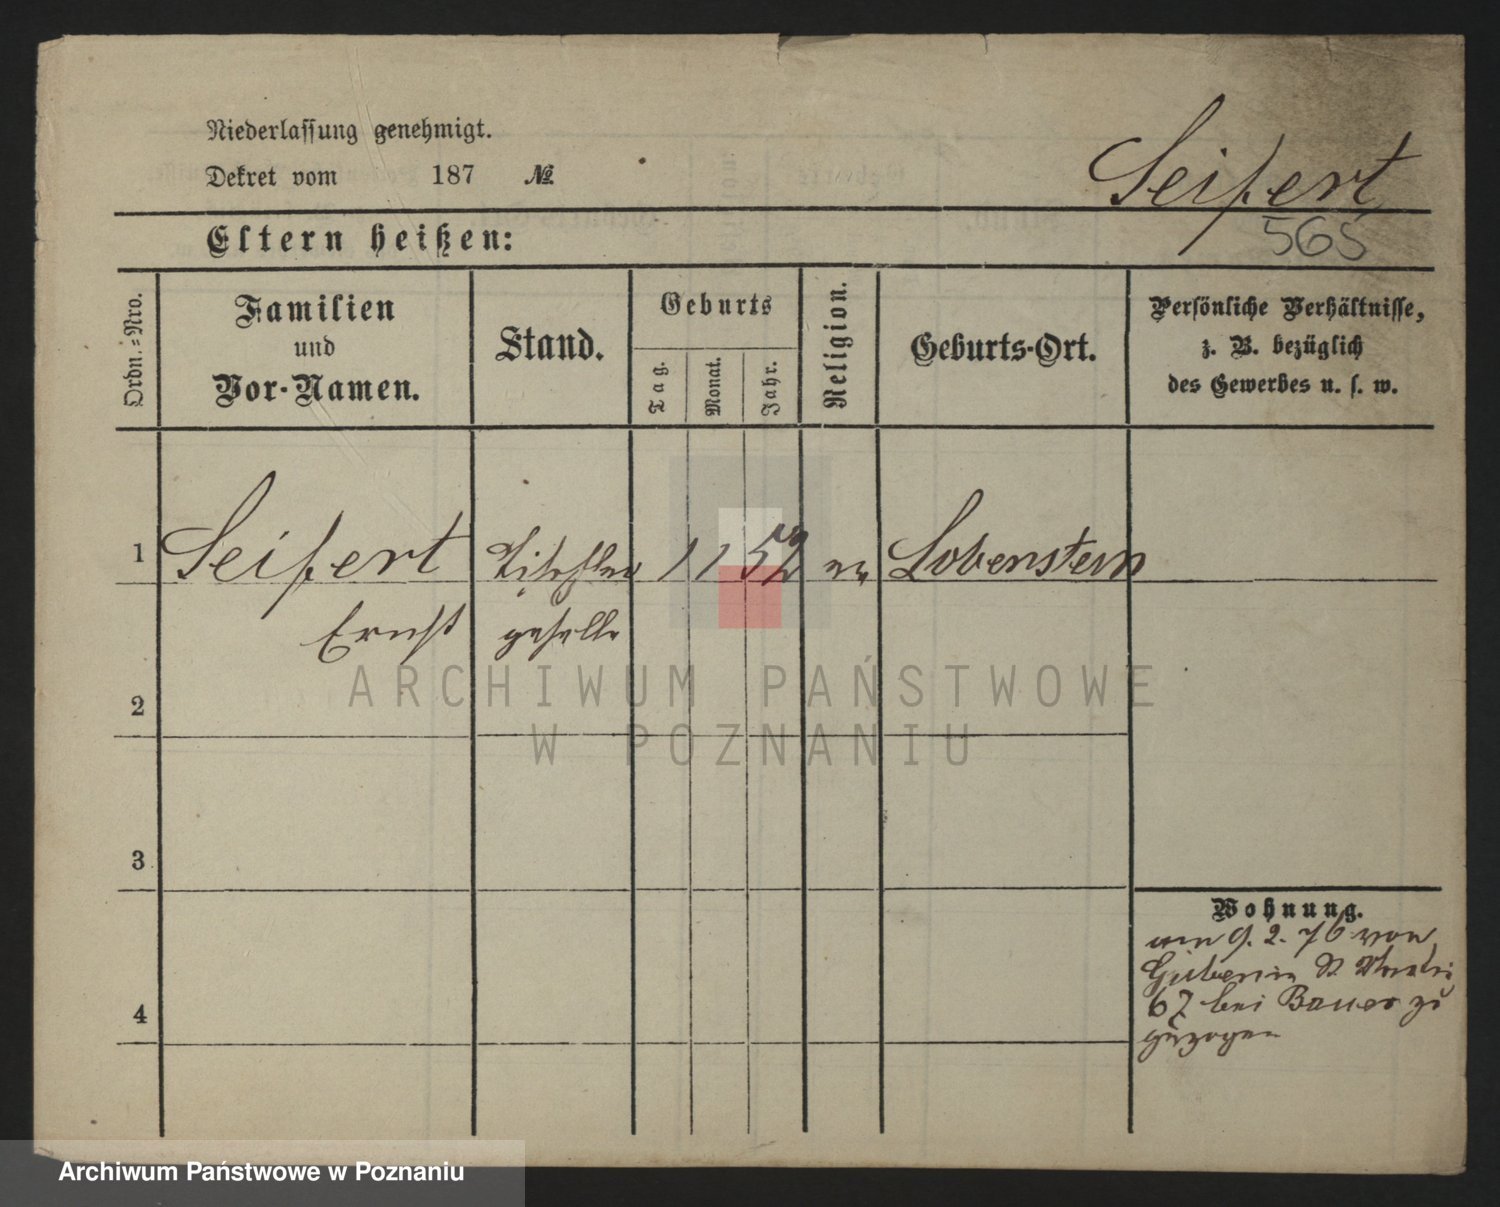 Niederlassung genehmigt.
Dekret vom 187 №
Seifert
565
Eltern heißen:
Ordn.=Nro.
Familien
und
Vor-Namen.
Stand.
Geburts
Tag.
Monat.
Jahr.
Religion.
Geburts-Ort.
Persönliche Verhältnisse,
z. B. bezüglich
des Gewerbes u. s. w.
1 Seifert Tischler 1 1 52 ev Lobenstein
Ernst geselle
2
3
4
Wohnung.
am 9. 2. 76 von
St Martin
67 bei Bauer zu
gezogen
ARCHIWUM PAŃSTWOWE
W POZNANIU
Archiwum Państwowe w Poznaniu